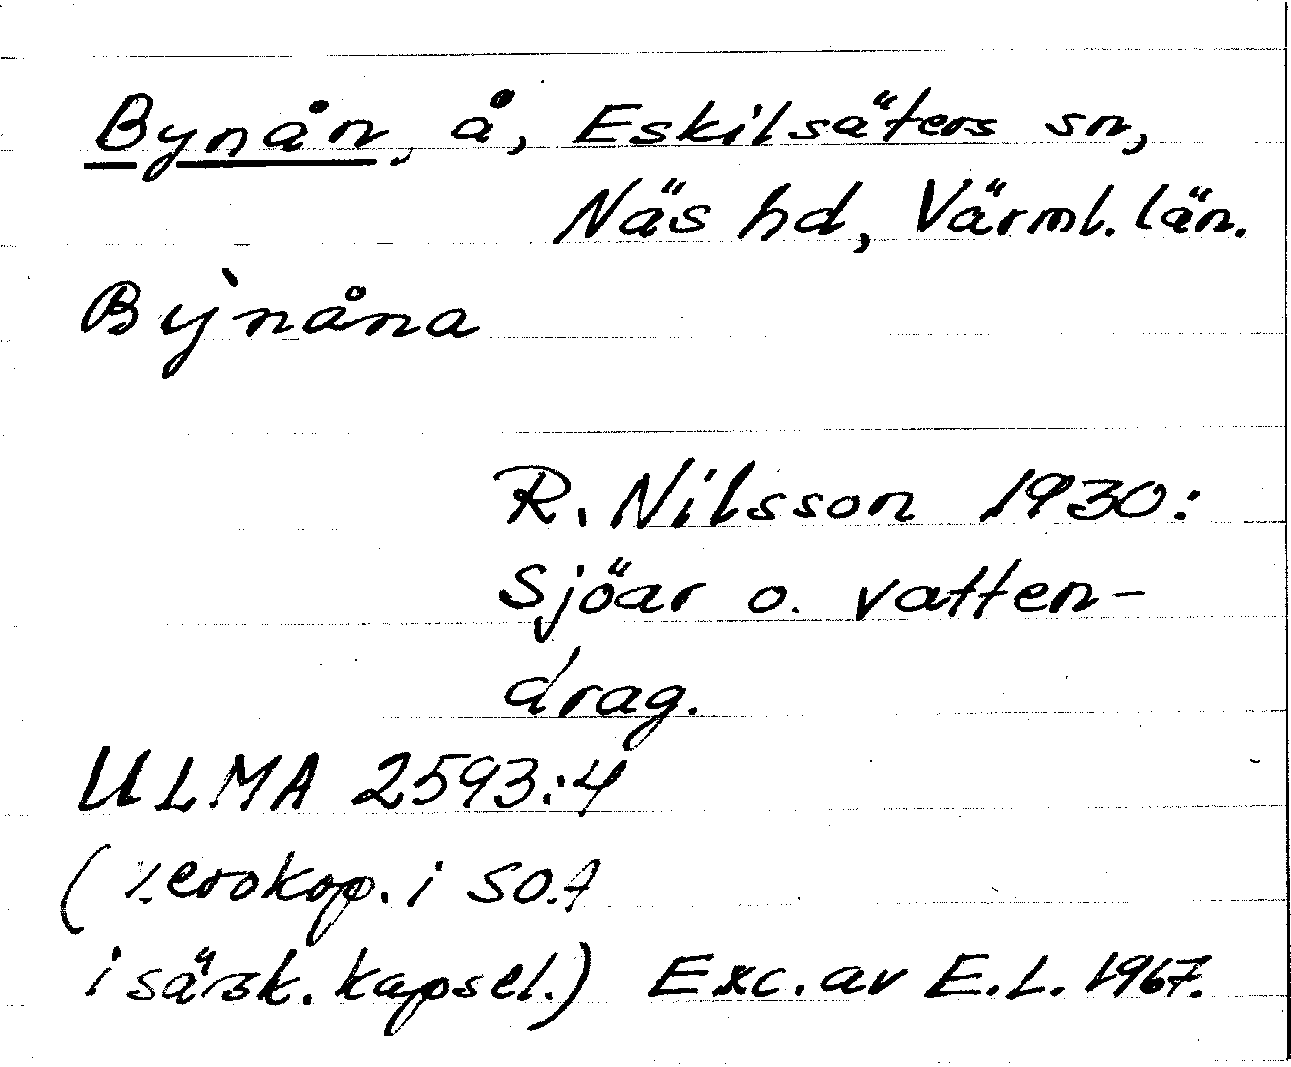 Bynån, å, Eskilsäters sn,
Näs hd, Värml. län.
Bỳnåna
R. Nilsson 1930:
Sjöar o. vatten-
drag.
ULMA 2593:4
(xerokop. i SOA
i särsk. kapsel.) Exc. av E.L. 1967.